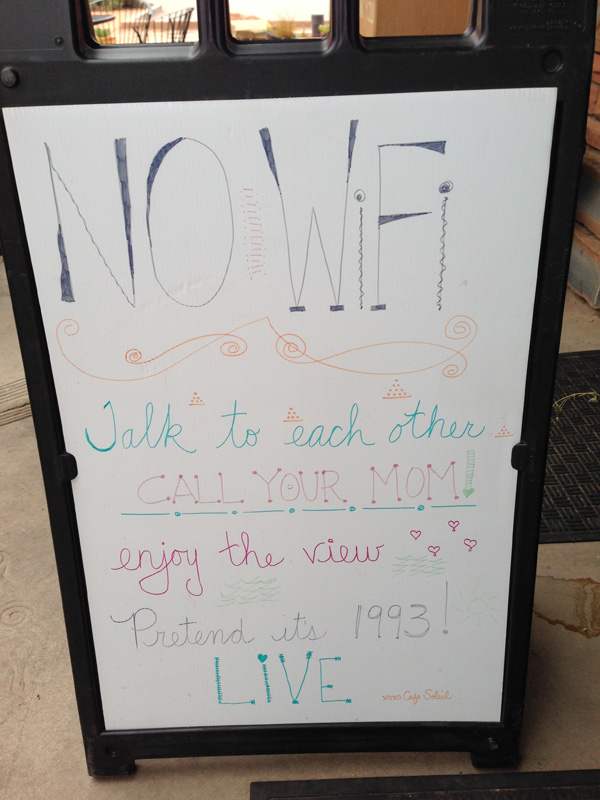 NO WiFi
Talk to each other
CALL YOUR MOM!
enjoy the view
Pretend it's 1993!
LiVE
xoxo Cafe Soleil